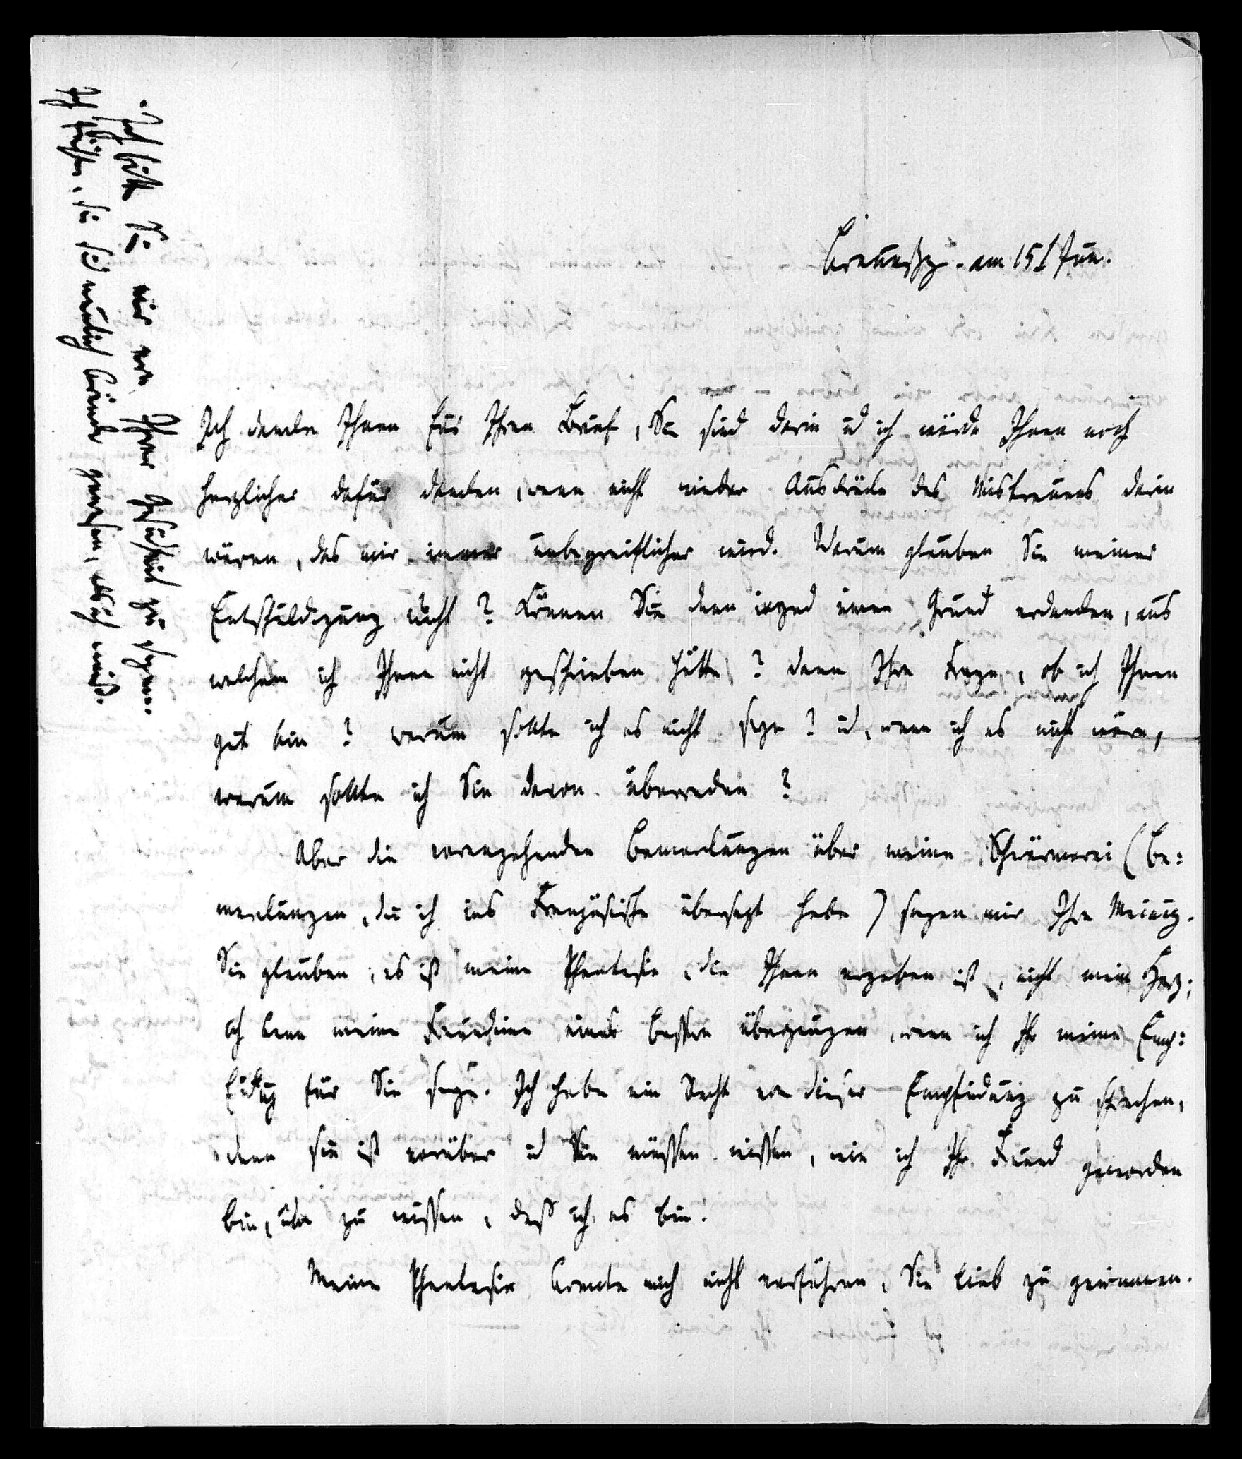 Braunschw. am 15t Jun.
Ich danke Ihnen für Ihren Brief, Sie sind darin ud ich würde Ihnen noch
herzlicher dafür danken, wenn nicht wieder Ausdrücke des Mistrauens darin
wären, das mir immer unbegreiflicher wird. Warum glauben Sie meiner
Entschuldigung nicht? Können Sie denn irgend einen Grund erdenken, aus
welchem ich Ihnen nicht geschrieben hätte? denn Ihre Frage, ob ich Ihnen
gut bin? warum sollte ich es nicht seyn? ud, wenn ich es nicht wäre,
warum sollte ich Sie davon überreden?
Aber die vorangehenden Bemerkungen über meine Schwärmerei (Be=
merkungen, die ich ins Französische übersezt habe) sagen mir Ihre Meinung.
Sie glauben, es ist meine Phantasie, die Ihnen ergeben ist, nicht mein Herz;
ich kann meine Freundinn eines bessern überzeugen, wenn ich Ihr meine Emp=
findung für Sie sage. Ich habe ein Recht von dieser Empfindung zu sprechen,
denn sie ist vorüber ud Sie müssen wissen, wie ich Ihr Freund geworden
bin, um zu wissen, dass ich es bin.
Meine Phantasie konnte mich nicht verführen, Sie lieb zu gewinnen.
Ich bitte Sie mir von Ihrer zu sagen.
Ich fürchte, Sie sind neulich gewesen, als ich weiß.